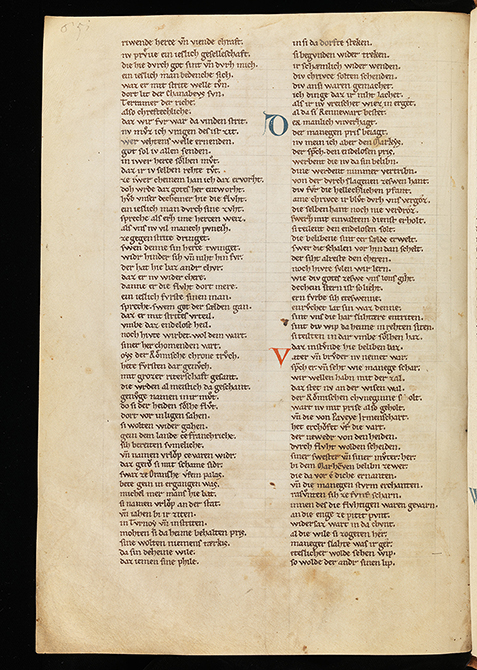 riwende herze vñ viende chraft.
nv prvve ein ieslich geselleschaft.
die hie dvrch got sint vñ dvrh mich.
ein ieslich man bedenche sich.
waz er mit strite welle tvn.
dort lie der Clunabeys svn.
Terramer der riche.
also chreftechliche.
daz wir fvr war da vinden strit.
nv mvz ich vragen des ist zit.
wer vehtens welle ernenden.
got sol iv allen senden.
in iwer herze sölhen mvt.
daz ir iv selben rehte tvt.
ze iwer cheinem han ich daz ervorht.
doh wrde daz gotes her entworht.
hvb vnser decheiner hie die flvht.
ein ieslich man dvrch sine zvht.
spreche als erz ime herzen werz.
als vns nv vil manech pvneiz.
ze gegen strite dringet.
swen danne sin herze twinget.
widr hinder sih vñ niht hin fvr.
der hat hie baz andr chvr.
daz er nv wider chere.
danne er die flvht dort mere.
ein ieslich fvrste sinen man.
sprech. swem got der selden gan.
daz er mit strites vrteil.
vmbe daz endelose heil.
noch hivte wirbet. wol dem wart.
siner her chomenden vart.
ovz der Römische chrone trvch.
hete fvrsten dar genvch.
mit grozer riterschaft gesant.
die wrden al meistech da geschant.
genvge namen nur mvt.
do si der heiden sölhe flvt.
dort vor in ligen sahen.
si wolten wider gahen.
gein dem lande ze franchriche.
sih bereiten svmeliche.
vñ namen vrlöp ze varen widr.
daz gerou si mit schame sidr.
swaz ze Oransche vfem palas.
bete gein in ergangen was.
michel mer mans hie bat.
si namen vrlöp an der stat.
vñ iahen hi ir ziten.
in Turnoy vñ in striten.
mohten si da heime behalten pris.
sine wolten niemens
da sin deheine wile.
daz iemen sine phile.
in si da dorfte steken.
si begvnden wider treken.
ir schemilich wider wenden.
div chrivce solten schenden.
div an si waren gemachet.
ich dinge daz ir niht lachet.
als ir iv vreischet wiez in erget.
al da si Rennewart bestet.
Der manlich vnverzagt.
der manegen pris beiagt.
nv mein ich aber den Markeys.
der spch. den endelosen pris.
werbent die nv da sin belibn.
die werdent nimmer vertribn.
von der dvrh slagenen zeswen hant.
div fvr die hellechlichen pfant.
ame chrivce ir blvt dvrh vns vergöz.
die selben hant noch nie verdroz.
swerz mit einvaltem dienst erholt.
si teilent den endelosen solt.
die belibene sint ter selde erwelt.
swer die schalen vor hin dan schelt.
der siht alreste den cheren.
noch hivte svlen wir lern.
wie div gotes zeswe vns lons giht.
dechein stern ist so lieht.
ern fvrbe sih etzswenne.
ein vehter lat sin war denne.
sint vns die harslihtere entriten.
sint div wip da heime in rehten siten.
si teilten in dar vmbe sölhen haz.
daz in stvnde hie beliben baz.
Vater vñ brvder nv nemet war.
spch er. vñ seht wie manege schar.
wir wellen habn mit der zal.
daz stet nv an der wisen wal.
der Römischen chvneginne solt.
wart nv mit prise also geholt.
vñ die von Paveye Irmenschart.
het erchöfet vf die vart.
der newedr von den heiden.
dvrch flvht wolden scheiden.
siner swester vñ siner mvter: her.
bi dem Markeyen belibn ze wer.
die da vor e diche ernanten.
vñ die manegen stvrm erchanten.
rasvnten sih ze fvnf scharn.
innen des die flvhtigen waren gevarn.
an die enge ze pitet pvnt.
widersaz wart in da chvnt.
al die wile si zogeten her.
maneger slahte was ir ger.
etslicher wolde sehen wip.
so wolde der andr sinen lip.